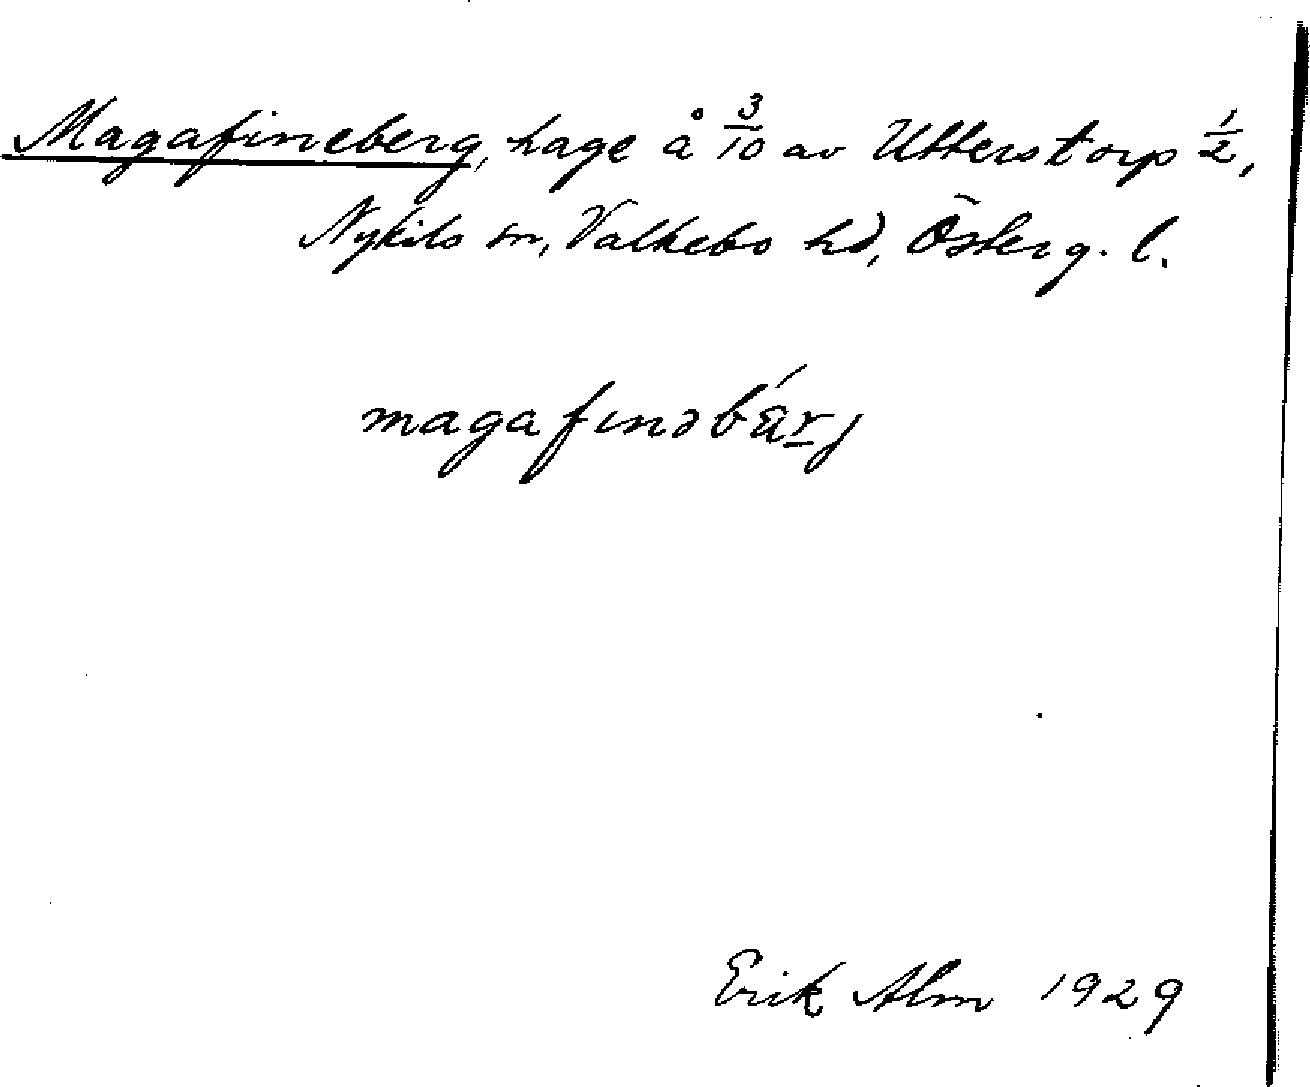 Magafineberg, hage å 3/10 av Utterstorp 1/2,
Nykils sn, Valkebo hd, Österg. l.
magafinəbǽrj
Erik Alm 1929